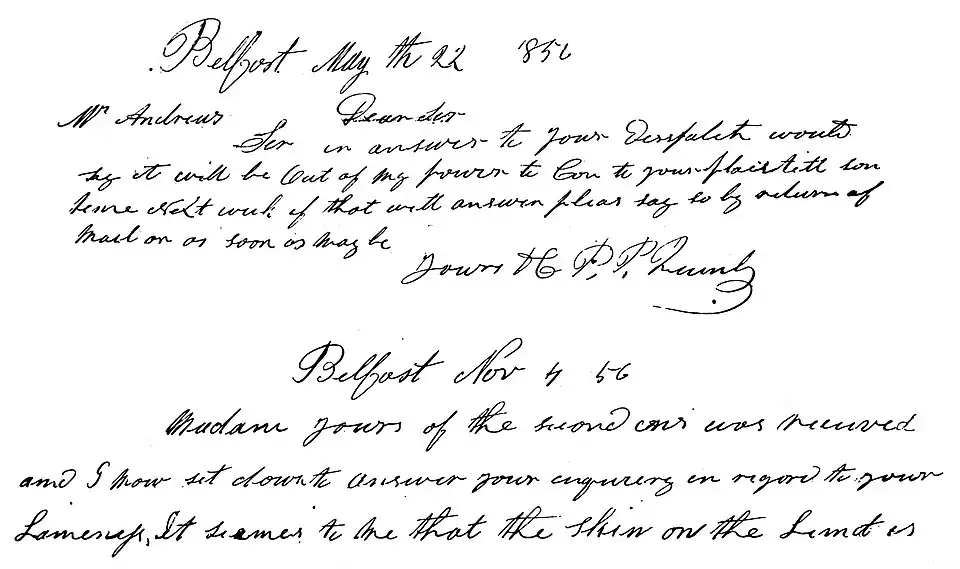 Belfast May th 22 1856
Mr Andrews Dear Ser
Ser in answer to your Disspatch would
say it will be Out of my power to Com to your plais till son
time Next week if that will answer pleas say so by return of
Mail or as soon as May be
Yours &c P. P. Quimby
Belfast Nov 4 56
Madam yours of the second was received
and I now set down to answer your enquirey in regard to your
Lameness, It seemes to me that the skin on the is